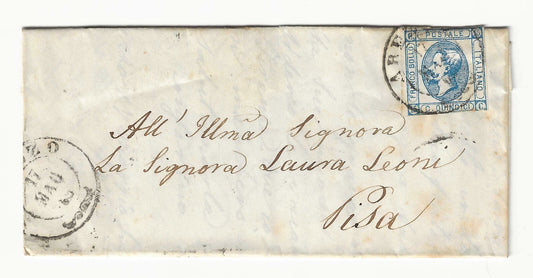 FRANCO BOLLO
POSTALE
ITALIANO
C. QUINDICI C.
ARE
All' Illma Signora
La Signora Laura Leoni
Pisa
ZO
17